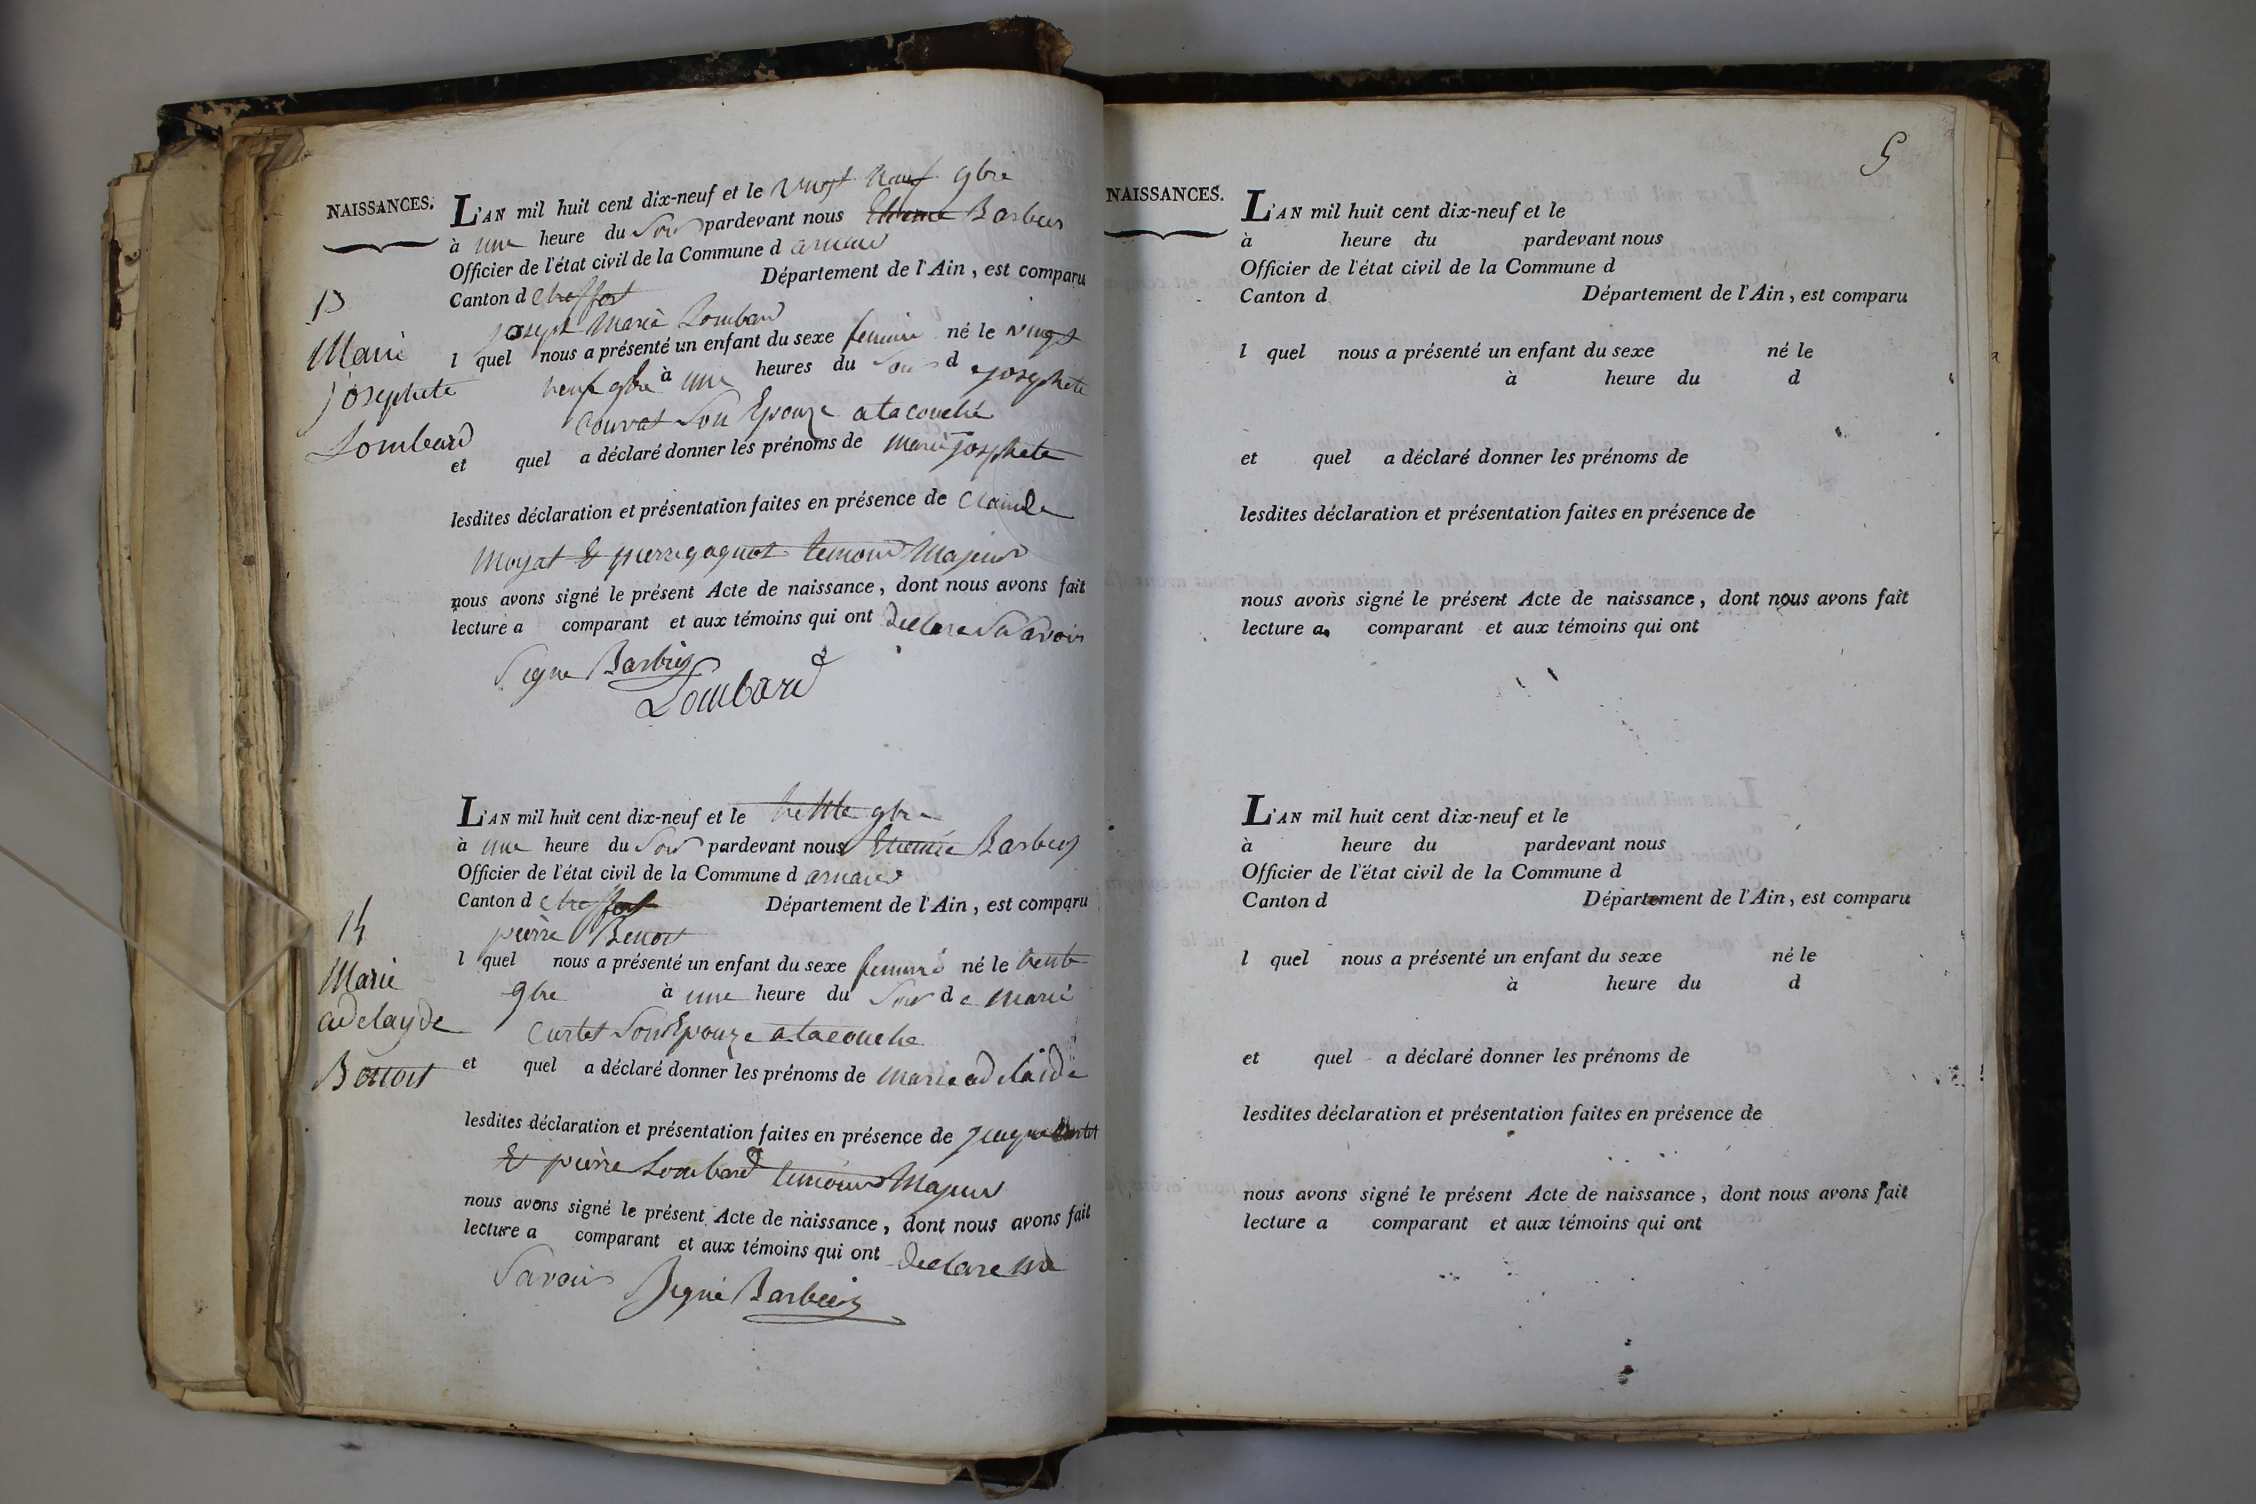 NAISSANCES.
L'AN mil huit cent dix-neuf et le vingt neuf 9bre
à une heure du Soir pardevant nous Etienne Barbier
Officier de l'état civil de la Commune d arnand
Canton d Treffort Département de l'Ain, est comparu
13
joseph Marie Lombard
Marie
l quel nous a présenté un enfant du sexe feminin né le vingt
josephete
neuf 9bre à une heures du Soir d e josephete
Lombard
Convat Son Epouze a la couché
et quel a déclaré donner les prénoms de marie josephete
lesdites déclaration et présentation faites en présence de Claude
Moyat & pierre gagnot temoin Majeur
nous avons signé le présent Acte de naissance, dont nous avons fait
lecture a comparant et aux témoins qui ont declare Savoir
Signe Barbier
Lombard
L'AN mil huit cent dix-neuf et le trente 9bre
à une heure du Soir pardevant nous Etienne Barbier
Officier de l'état civil de la Commune d arnand
Canton d Treffort Département de l'Ain, est comparu
14
pierre Benoit
Marie
l quel nous a présenté un enfant du sexe feminin né le trente
adelayde
9bre à une heure du Soir d e Marie
Benoit
Curtet Son Epouze a la couche
et quel a déclaré donner les prénoms de marie adelaide
lesdites déclaration et présentation faites en présence de Curtet
& pierre Lombard temoin Majeur
nous avons signé le présent Acte de naissance, dont nous avons fait
lecture a comparant et aux témoins qui ont declare
Savoir Signé Barbier
5
NAISSANCES.
L'AN mil huit cent dix-neuf et le
à heure du pardevant nous
Officier de l'état civil de la Commune d
Canton d Département de l'Ain, est comparu
l quel nous a présenté un enfant du sexe né le
à heure du d
et quel a déclaré donner les prénoms de
lesdites déclaration et présentation faites en présence de
nous avons signé le présent Acte de naissance, dont nous avons fait
lecture a comparant et aux témoins qui ont
L'AN mil huit cent dix-neuf et le
à heure du pardevant nous
Officier de l'état civil de la Commune d
Canton d Département de l'Ain, est comparu
l quel nous a présenté un enfant du sexe né le
à heure du d
et quel a déclaré donner les prénoms de
lesdites déclaration et présentation faites en présence de
nous avons signé le présent Acte de naissance, dont nous avons fait
lecture a comparant et aux témoins qui ont